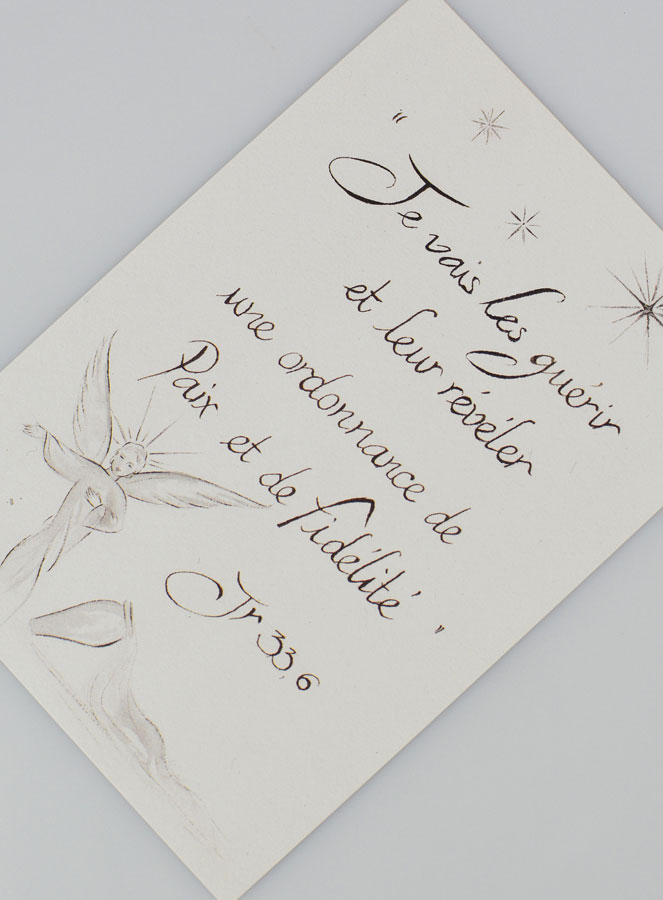 "Je vais les guérir
et leur révéler
une ordonnance de
Paix et de fidélité"
Jr 33,6